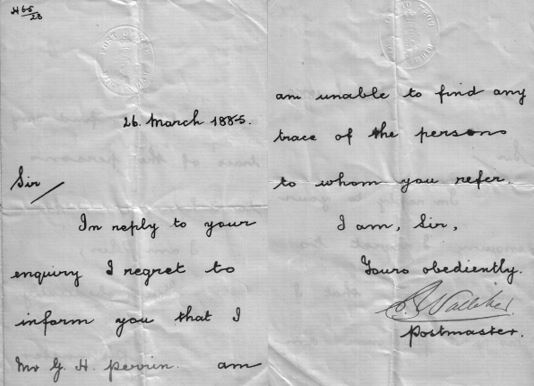 H 65/23
26. March 1885.
Sir
In reply to your
enquiry I regret to
inform you that I
Mr G. H. Perrin. am
am unable to find any
trace of the persons
to whom you refer.
I am, Sir,
Yours obediently.
Postmaster.